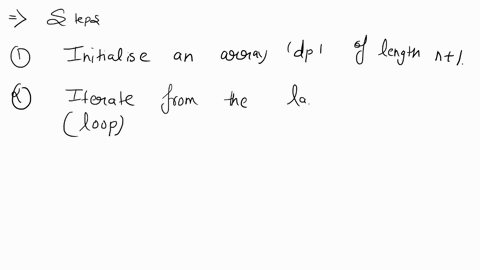 => Steps
① Initialise an array 'dp' of length n+1.
② Iterate from the la.
(loop)